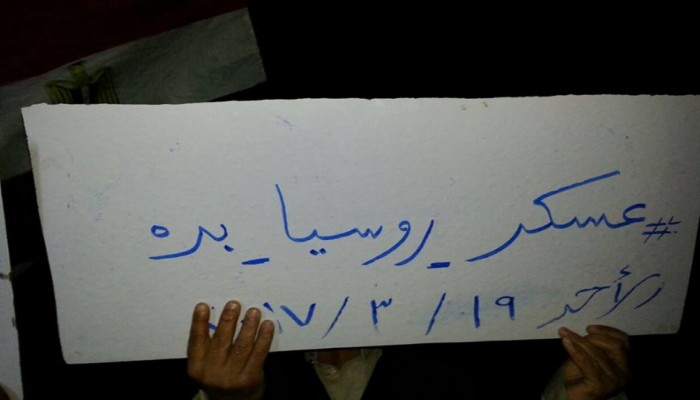 #عسكر_روسيا_بره
الأحد ١٩ / ٣ / ١٧